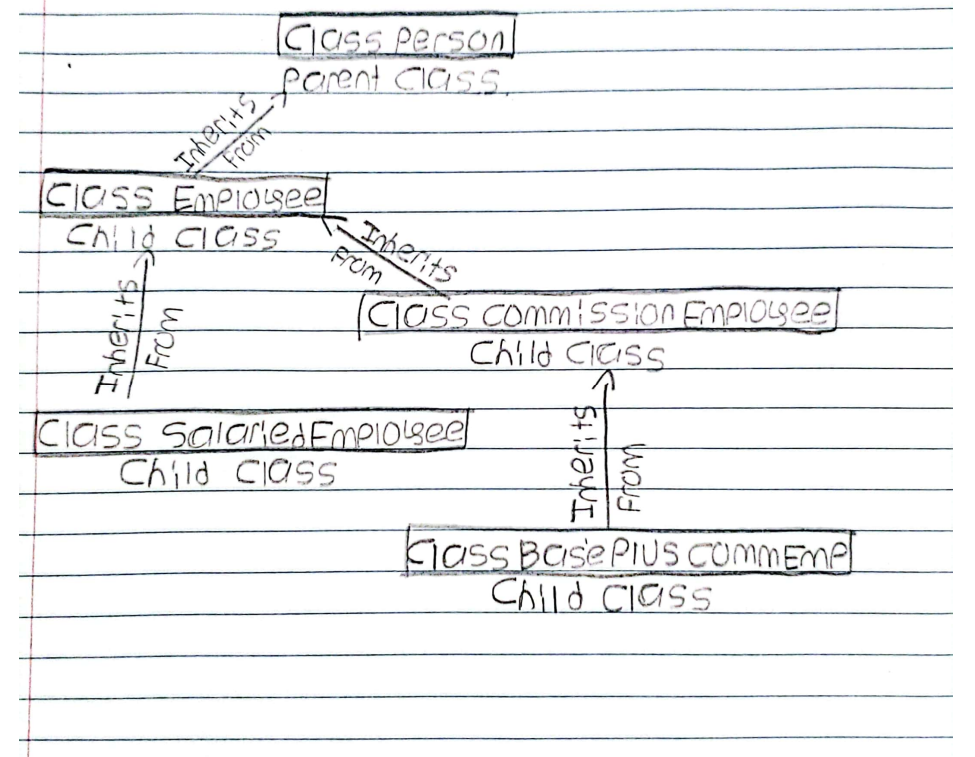 Class Person
Parent Class.
Inherits
From
Class Employee
Child Class
Inherits
From
Inherits
From
Class CommissionEmployee
Child Class
Class SalariedEmployee
Child Class
Inherits
From
Class BasePlusCommEmp
Child Class